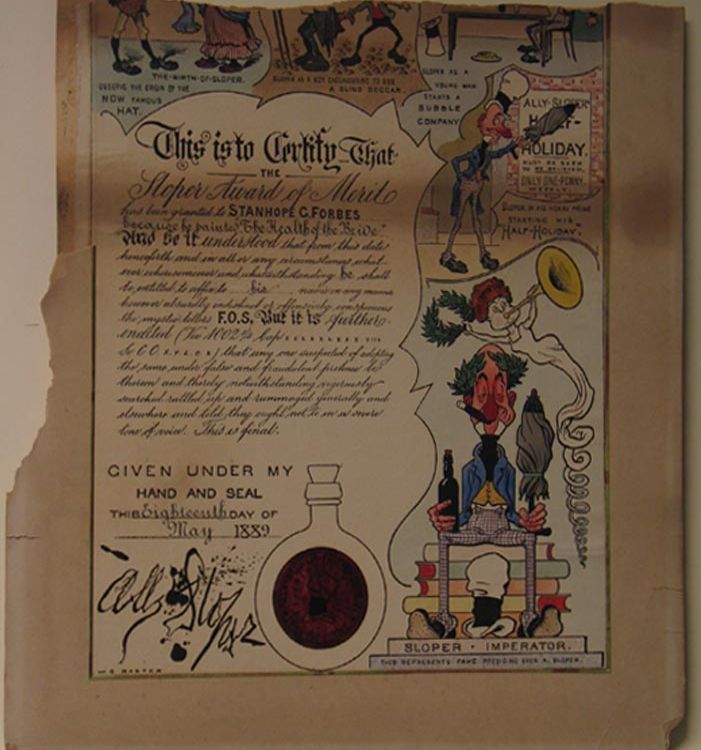 THE-BIRTH-OF-SLOPER.
OBSERVE THE ORIGIN OF THE
NOW FAMOUS
HAT.
SLOPER AS A BOY ENDEAVORING TO ROB
A BLIND BEGGAR.
SLOPER AS A
YOUNG MAN
STARTS A
BUBBLE
COMPANY
ALLY-SLOPER'S
HALF-
HOLIDAY.
MUST BE SEEN
TO BE BELIEVED.
ONLY ONE-PENNY.
WEEKLY.
SLOPER, IN HIS HOARY PRIME
STARTING HIS
"HALF-HOLIDAY."
This is to Certify That
THE
Sloper Award of Merit
has been granted to STANHOPE C. FORBES
because he painted "The Health of the Bride"
And be it understood that from this date
henceforth and in all or any circumstances what-
ever wheresoever and whatwithstanding he shall
be entitled to affix to his name in any manner
however absurdly and offensively conspicuous
the mystic letters F.O.S. But it is further
enacted (Vic 1002 Cap
that any one suspected of adopting
the same under false and fraudulent pretence be
thereon and thereby notwithstanding rigorously
searched rattled up and rummaged generally and
elsewhere and told they ought not to in a severe
tone of voice. This is final.
GIVEN UNDER MY
HAND AND SEAL
THIS Eighteenth DAY OF
May 1889
Ally Sloper
W.G. BAXTER
SLOPER • IMPERATOR.
THIS REPRESENTS FAME PRESIDING OVER A. SLOPER.